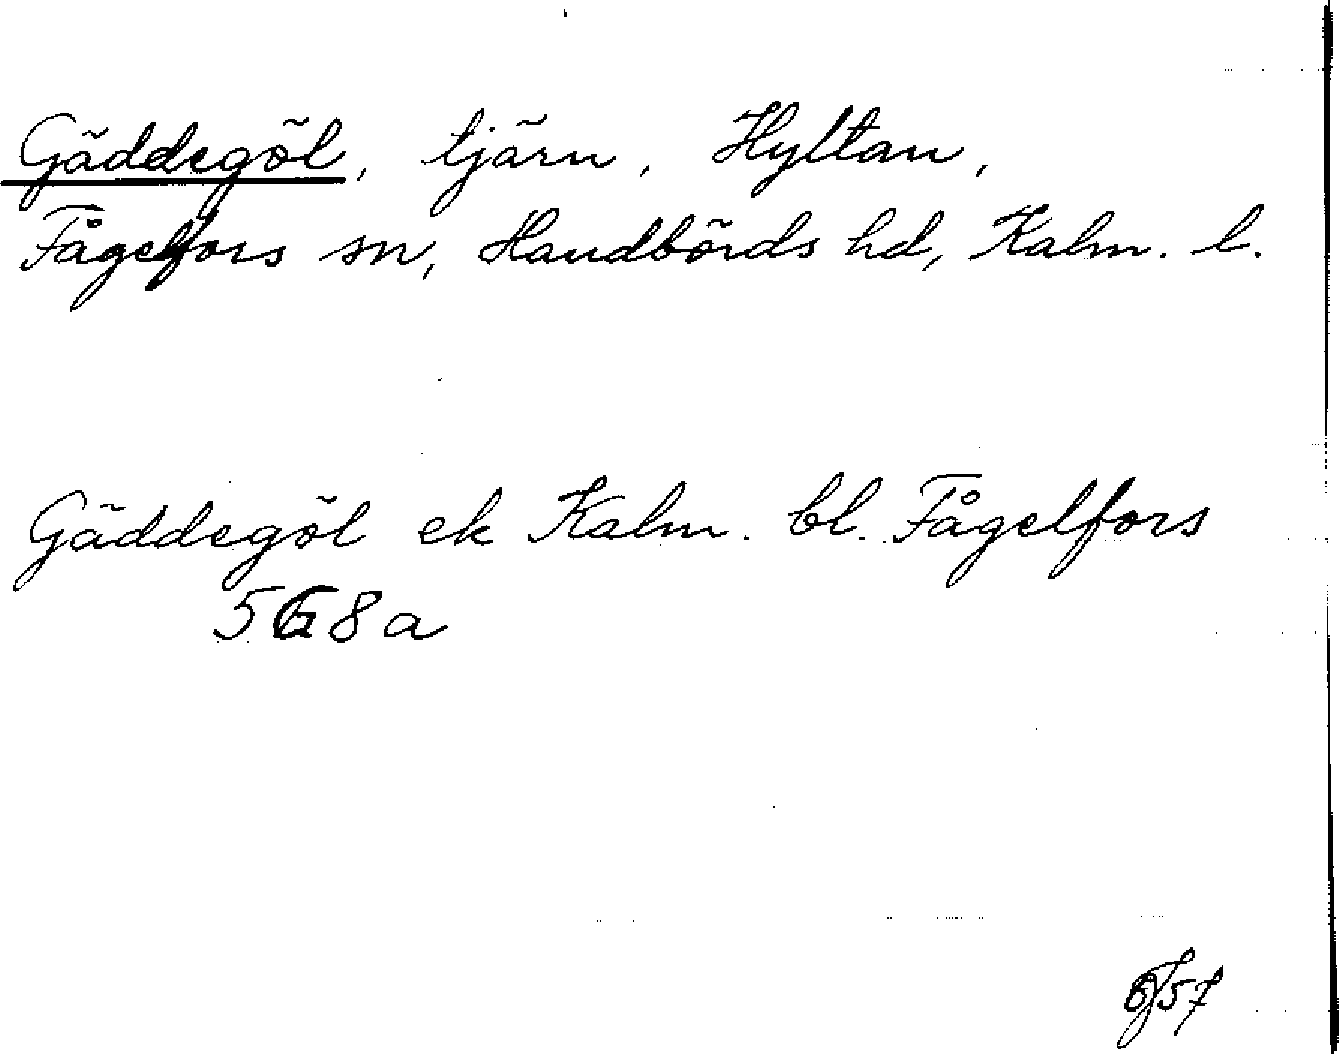 Gäddegöl, tjärn, Hyltan,
Fågelfors sn, Handbörds hd, Kalm. l.
Gäddegöl ek Kalm. bl. Fågelfors
5G8a